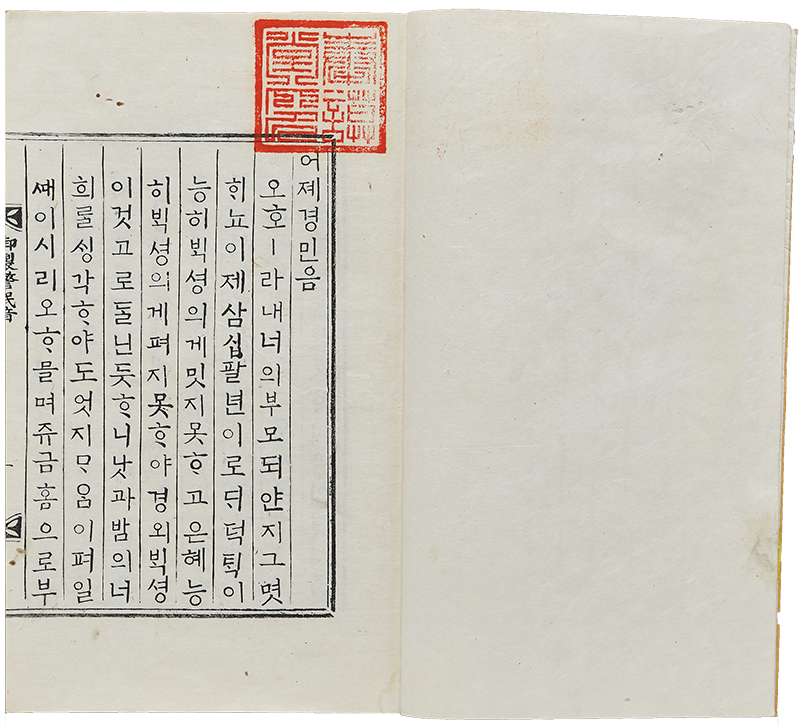 어졔경민음
오호ㅣ라내너의부모되얀지그몃
ᄒᆡ뇨이제삼섭팔년이로ᄃᆡ덕ᄐᆡᆨ이
능히ᄇᆡᆨ셩의게밋지못ᄒᆞ고은혜능
히ᄇᆡᆨ셩의게펴지못ᄒᆞ야경외ᄇᆡᆨ셩
이것고로ᄃᆞᆯ닌듯ᄒᆞ니낫과밤의너
희ᄅᆞᆯᄉᆡᆼ각ᄒᆞ야도엇지ᄆᆞ움이펴일
ᄯᅢ이시리오ᄒᆞ믈며쥬금홈으로부
御製警民音
一